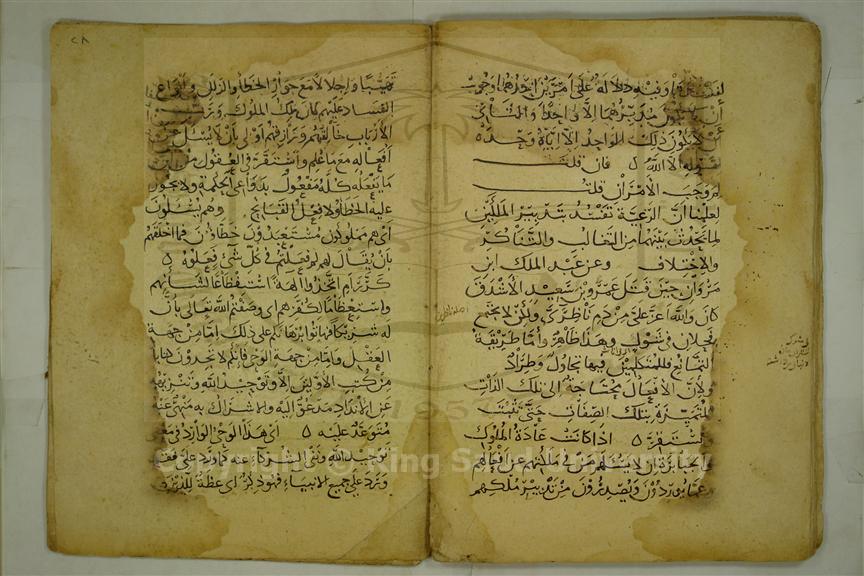 لفسدتا وفيه دلالة على امرين احدهما وجوب
ان يكون مدبرهما الا واحدا والثاني
ان لا يكون ذلك الواحد الا اياه وحده
لقوله الا الله ٥ فان قلت
لم وجب الامران قلت
لعلمنا ان الرعية تفسد بتدبير الملكين
لما يحدث بينهما من التغالب والتناكر
والاختلاف وعن عبد الملك ابن
مروان حين قتل عمرو بن سعيد الاشدق
كان والله اعز علي من دم ناظري ولكن لا يجتمع
فحلان في شول وهذا ظاهر واما طريقة
التمانع فللمتكلمين فيها تجاول وطراد
ولان الافعال محتاجة الى تلك الذات
المتميزة بتلك الصفات حتى تثبت
وتستقر ٥ اذا كانت عادة الملوك
الجبابرة ان لا يسئلهم من في مملكتهم عن افعالهم
وعما يوردون ويصدرون من تدبير ملكهم
٢٨
تهيبا واجلالا مع جواز الخطأ والزلل وانواع
الفساد عليهم كان ملك الملوك ورب
الارباب خالقهم ورازقهم اولى بان لا يسئل عن
افعاله مع ما علم واستقر في العقول من ان
ما يفعله كله مفعول بدواعي الحكمة ولا يجوز
عليه الخطأ ولا فعل القبائح وهم يسئلون
اى هم مملوكون مستعبدون خطاؤن فما اخلقهم
بان يقال لهم لم فعلتم في كل شي فعلوه ٥
كرر ام اتخذوا الهة استفظاعا لشأنهم
واستعظاما لكفرهم اى وصفتم الله تعالى بان
له شريكا فهاتوا برهانكم على ذلك اما من جهة
العقل واما من جهة الوحي فانكم لا تجدون كتابا
من كتب الاولين الا وتوحيد الله وتنزيهه
عن الانداد مدعو اليه والاشراك به منهى عنه
متوعد عليه ٥ اى هذا الوحي الوارد في معنى
توحيد الله ونفي الشركاء عنه كما ورد علي فقد
ورد على جميع الانبياء فهو ذكر اى عظة للذين
Copyright © King Saud University
1957